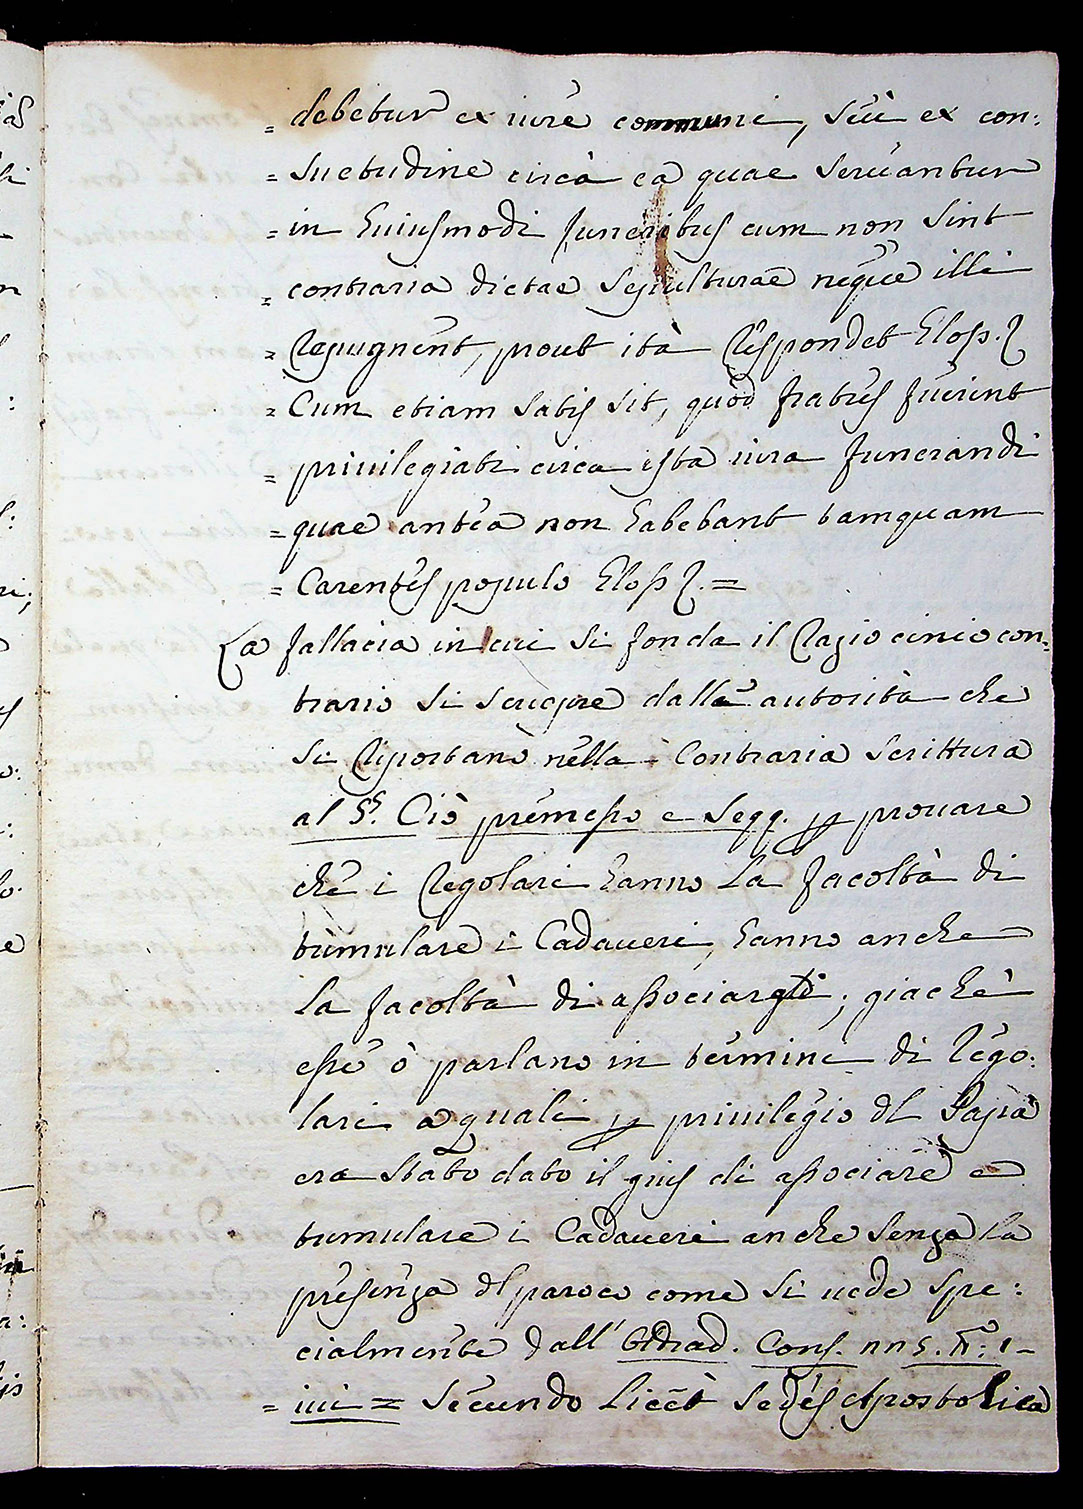 = debetur ex iure communi, seu ex con:
= suetudine circà ea quae seruantur
= in huiusmodi funeribus cum non sint
= contraria dictae sepulturae neque illi
= repugnent, prout ità respondet
= Cum etiam satis sit, quòd fratres fuerint
= priuilegiati circa ista iura funerandi
= quae antea non habebant tamquam
= Carentes populo =
La fallacia in cui si fonda il raziocinio con:
trario si scuopre dalle autorità che
si riportano nella Contraria scrittura
al §. Ciò premesso e segq. p prouare
che i regolari hanno la facoltà di
tumulare i Cadaueri, hanno anche
la facoltà di associargli; giachè
esse ò parlano in termini di rego:
lari a quali p priuilegio dl Papa
era stato dato il gius di associare e
tumulare i Cadaueri anche senza la
presenza dl paroco come si uede spe:
cialmente dall' Cons.
= iui = Secundo licèt sedes Apostolica